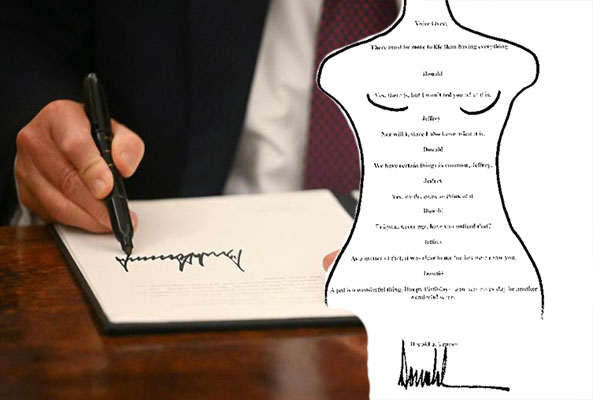 Voice Over:
There must be more to life than having everything
Donald
Yes, there is, but I won't tell you what it is.
Jeffrey
Nor will I, since I also know what it is.
Donald
We have certain things in common, Jeffrey.
Jeffrey
Yes, we do, come to think of it.
Donald
Enigmas never age, have you noticed that?
Jeffrey
As a matter of fact, it was clear to me the last time I saw you.
Donald
A pal is a wonderful thing. Happy Birthday — and may every day be another
wonderful secret.
Donald J. Trump
Donald